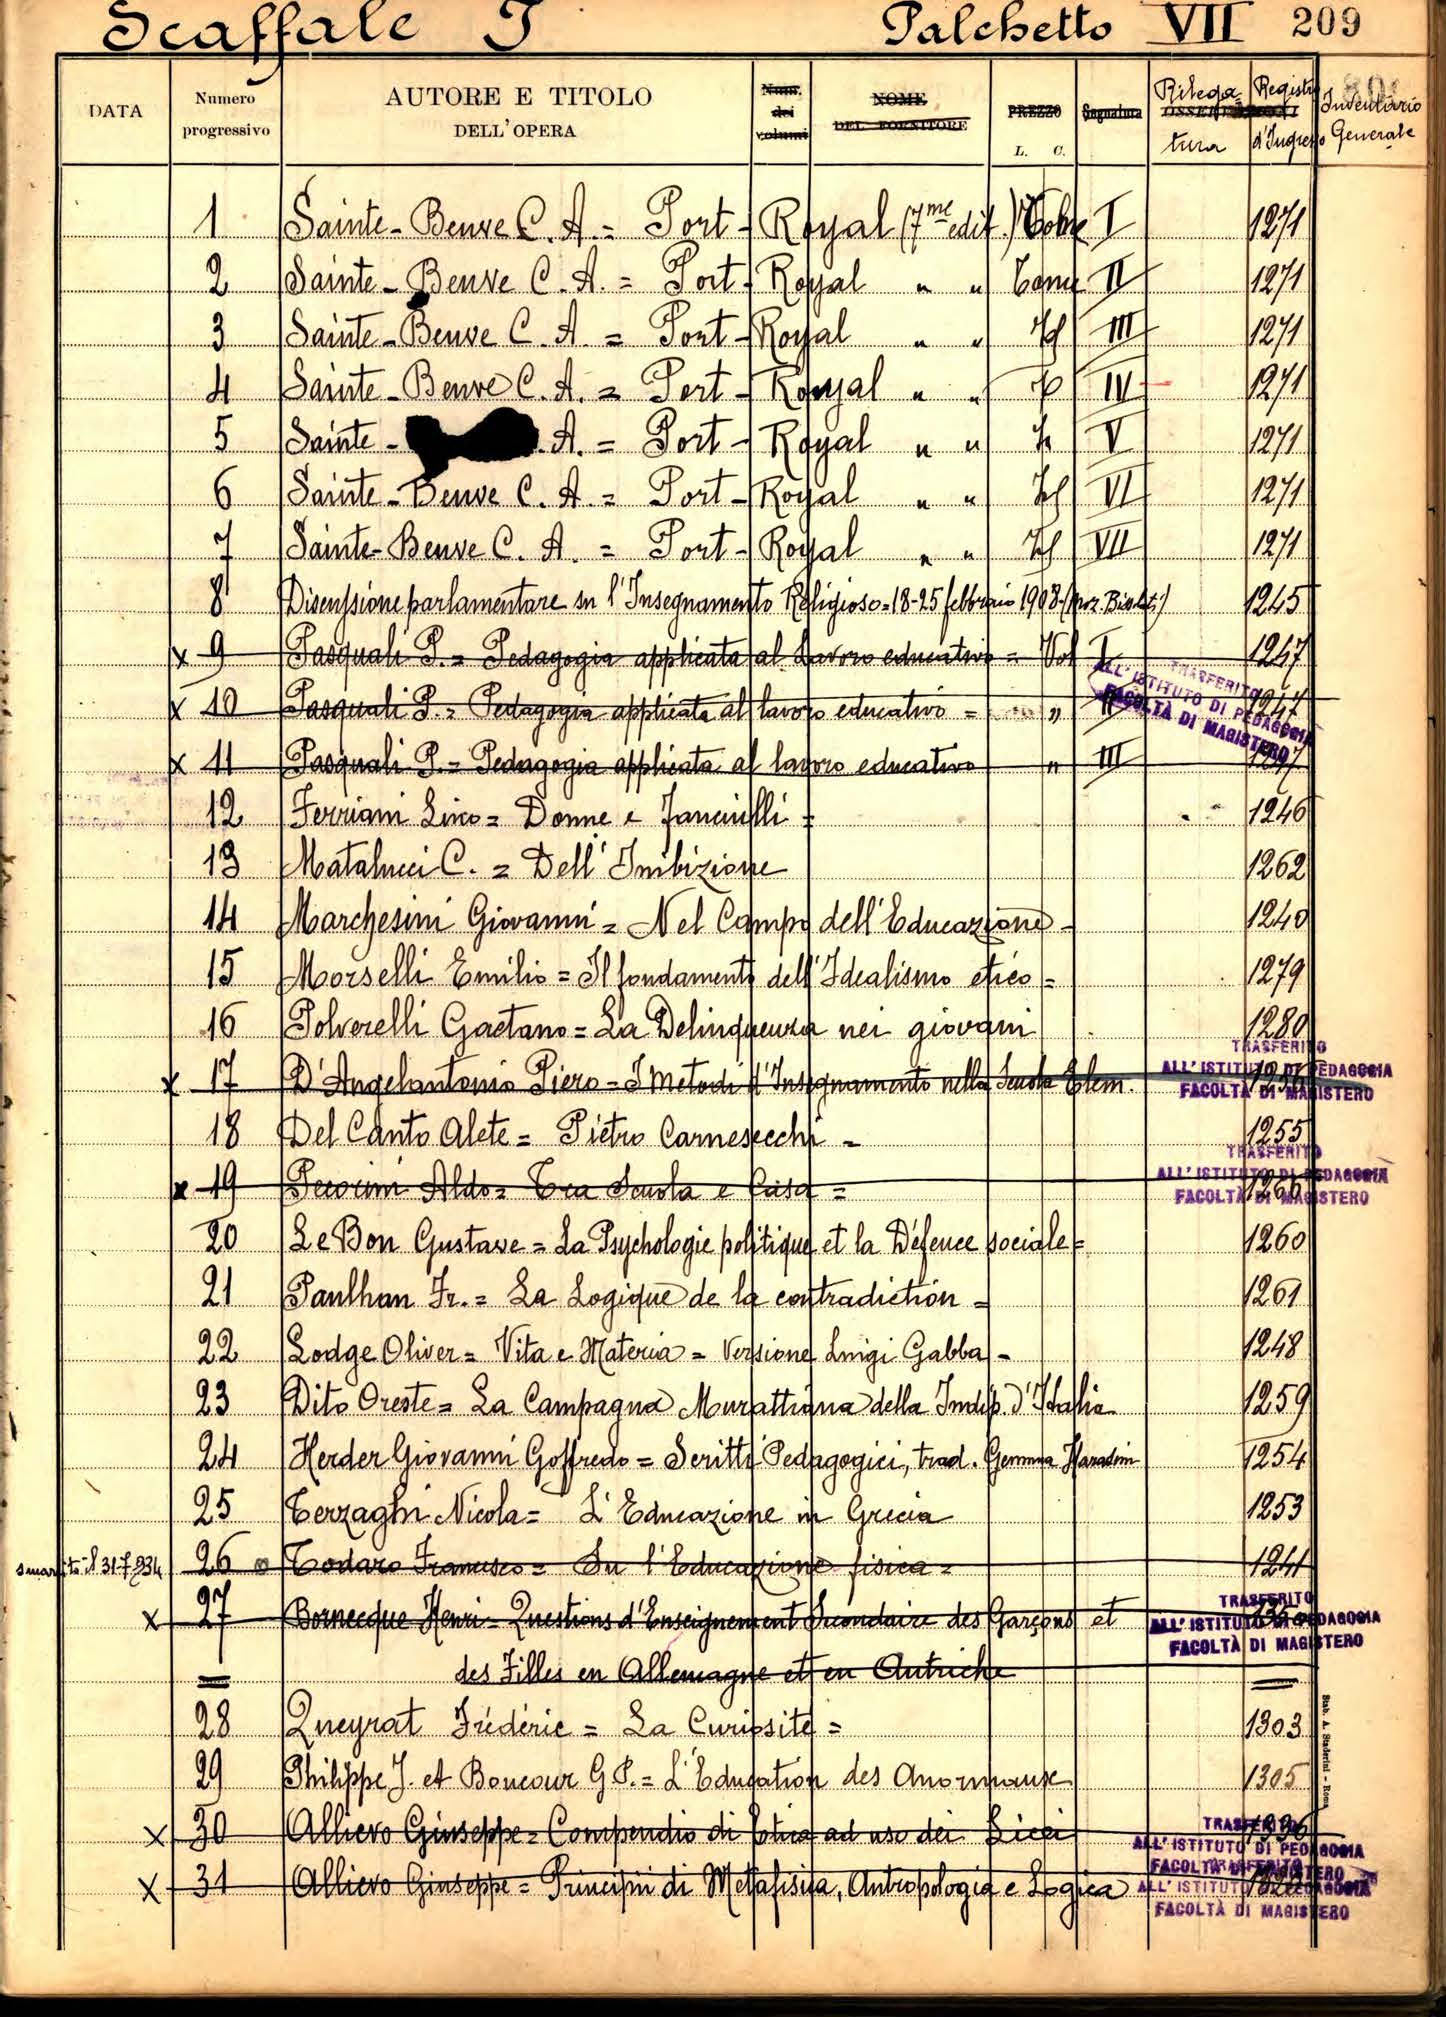 Scaffale I Palchetto VII 209
DATA Numero progressivo AUTORE E TITOLO DELL'OPERA Num. dei volumi NOME DEL FORNITORE PREZZO L. C. Segnatura Rilegatura Registro d'Ingresso Inventario Generale
1 Sainte-Beuve C. A. = Port-Royal (7me edit.) Tome I 1271
2 Sainte-Beuve C. A. = Port-Royal " " Tome II 1271
3 Sainte-Beuve C. A. = Port-Royal " " Id III 1271
4 Sainte-Beuve C. A. = Port-Royal " " IV 1271
5 Sainte- A. = Port-Royal " " V 1271
6 Sainte-Beuve C. A. = Port-Royal " " Id VI 1271
7 Sainte-Beuve C. A. = Port-Royal " " Id VII 1271
8 Discussione parlamentare su l'Insegnamento Religioso = 18-25 febbraio 1908 - (moz. Bissolati) 1245
x 9 Pasquali P. = Pedagogia applicata al Lavoro educativo = Vol I 1247
x 10 Pasquali P. = Pedagogia applicata al lavoro educativo = " II 1247
TRASFERITO
ALL'ISTITUTO DI PEDAGOGIA
FACOLTÀ DI MAGISTERO
x 11 Pasquali P. = Pedagogia applicata al lavoro educativo " III 1247
12 Ferriani Lino = Donne e Fanciulli = 1246
13 Matalucci C. = Dell'Inibizione 1262
14 Marchesini Giovanni = Nel Campo dell'Educazione - 1240
15 Morselli Emilio = Il fondamento dell'Idealismo etico = 1279
16 Polverelli Gaetano = La Delinquenza nei giovani 1280
x 17 D'Angelantonio Piero = I Metodi d'Insegnamento nella Scuola Elem.
TRASFERITO
ALL'ISTITUTO DI PEDAGOGIA
FACOLTÀ DI MAGISTERO
18 Del Canto Alete = Pietro Carnesecchi = 1255
x 19 Pecorini Aldo = Tra Scuola e Casa = 1266
TRASFERITO
ALL'ISTITUTO DI PEDAGOGIA
FACOLTÀ DI MAGISTERO
20 Le Bon Gustave = La Psychologie politique et la Défence sociale = 1260
21 Paulhan Fr. = La Logique de la contradiction = 1261
22 Lodge Oliver = Vita e Materia = Versione Luigi Gabba - 1248
23 Dito Oreste = La Campagna Murattiana della Indip. d'Italia 1259
24 Herder Giovanni Goffredo = Scritti Pedagogici, trad. Gemma Harasim 1254
25 Terzaghi Nicola = L'Educazione in Grecia 1253
smarrito il 31-7-934 26 Todaro Francesco = Su l'Educazione fisica = 1241
x 27 Bornecque Henri = Questions d'Enseignement Secondaire des Garçons et
TRASFERITO
ALL'ISTITUTO DI PEDAGOGIA
FACOLTÀ DI MAGISTERO
= des Filles en Allemagne et en Autriche =
28 Queyrat Frédéric = La Curiosité = 1303
29 Philippe J. et Boncour G. P. = L'Education des Anormaux 1305
x 30 Allievo Giuseppe = Compendio di Etica ad uso dei Licei 1336
TRASFERITO
ALL'ISTITUTO DI PEDAGOGIA
FACOLTÀ DI MAGISTERO
x 31 Allievo Giuseppe = Principii di Metafisica, Antropologia e Logica
TRASFERITO
ALL'ISTITUTO DI PEDAGOGIA
FACOLTÀ DI MAGISTERO
Stab. A. Staderini - Roma